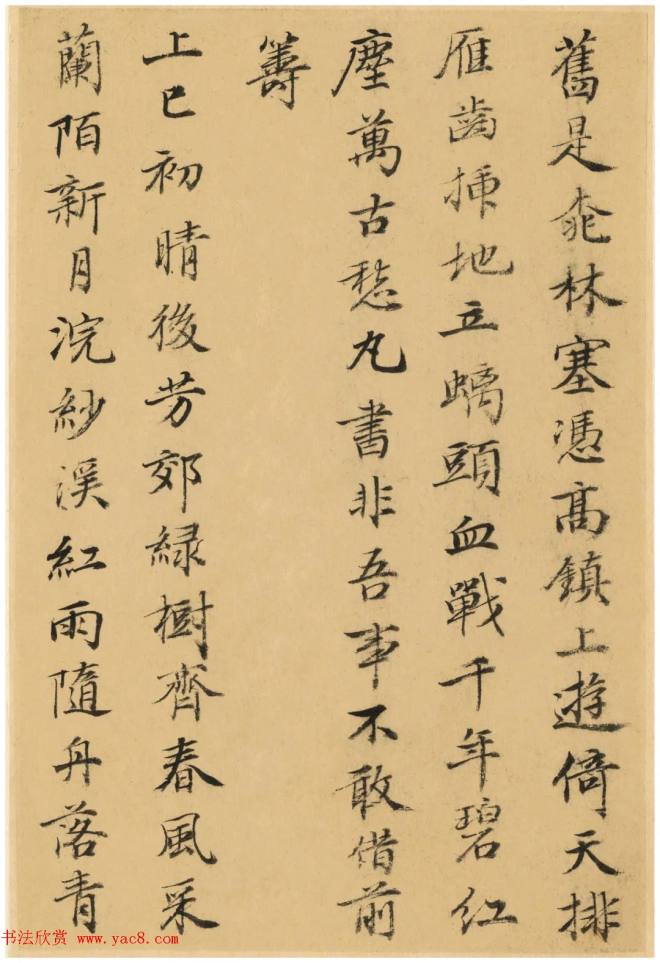 舊是桃林塞憑高鎮上遊倚天排
雁齒插地立螭頭血戰千年碧紅
塵萬古愁丸書非吾事不敢借前
籌
上巳初晴後芳郊綠樹齊春風采
蘭陌新月浣紗溪紅雨隨舟落青
书法欣赏 www.yac8.com